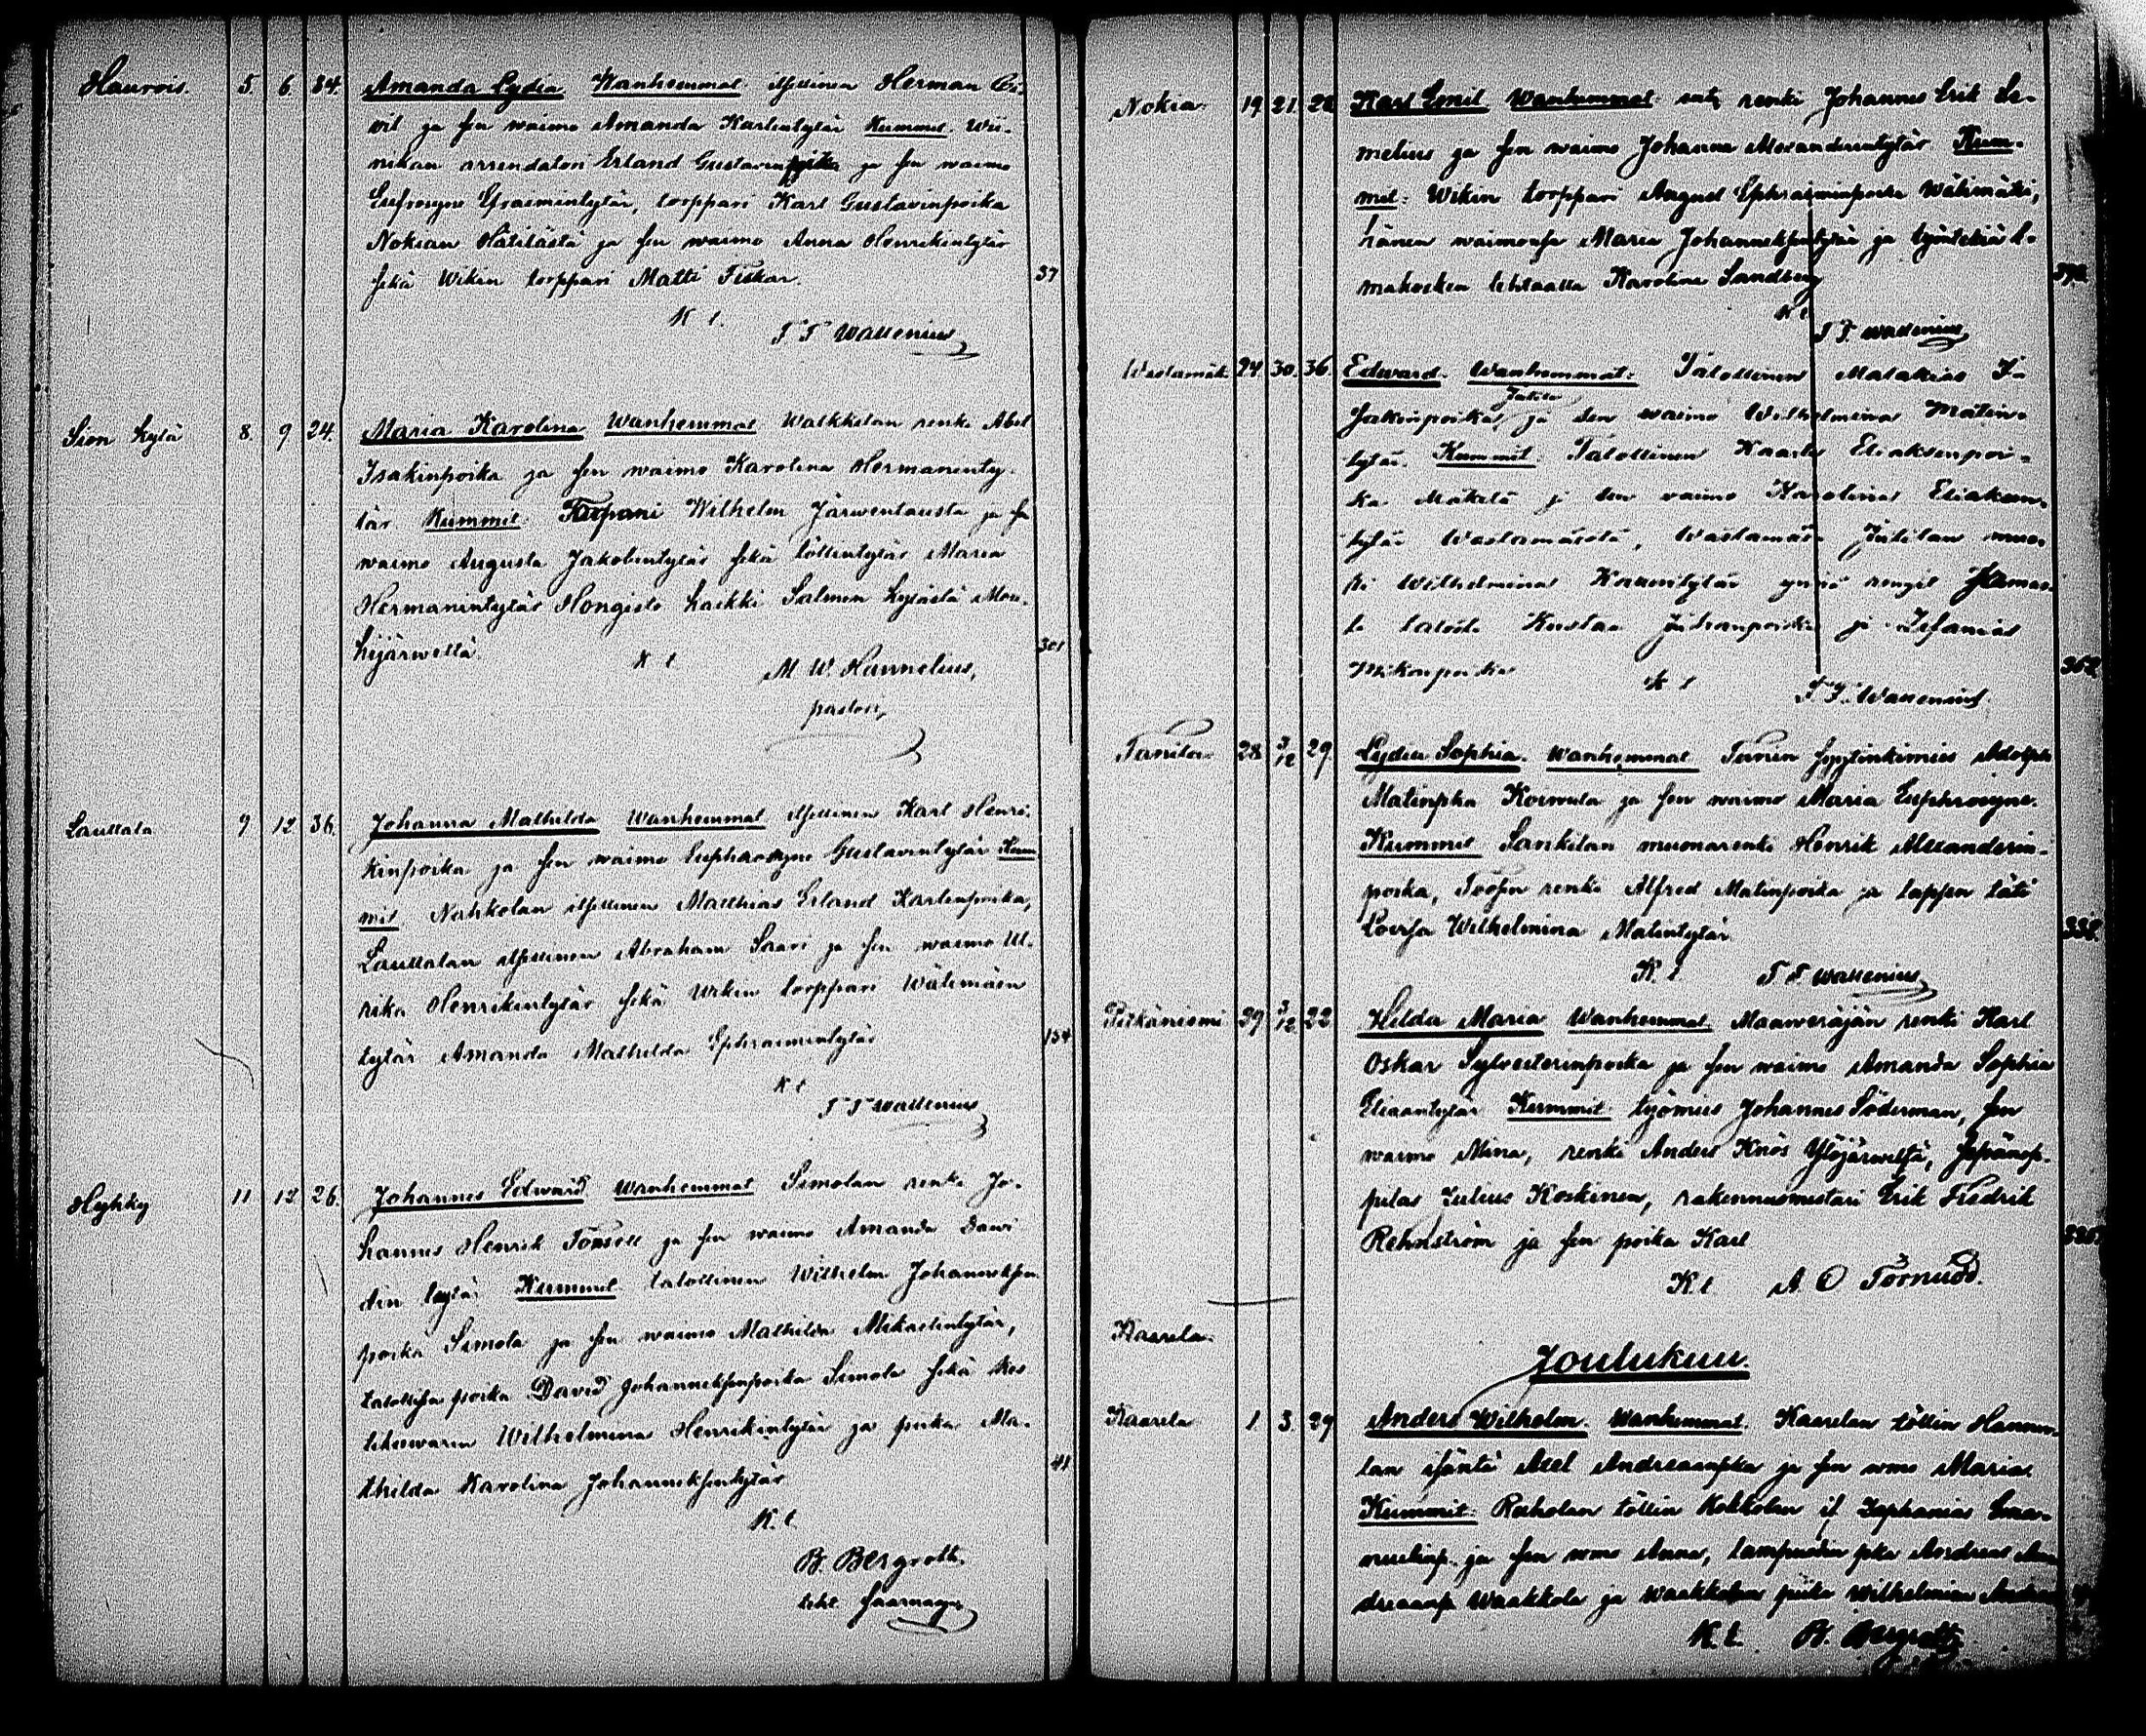 Haurois. 5. 6. 34. Amanda Lydia Wanhemmat itsellinen Herman
wit ja sen waimo Amanda Karlintytär Kummit. Wii-
nikan arrendatori Erland Gustavinpoika ja sen waimo
Eufrosyne Efraimintytär, torppari Karl Gustavinpoika
Nokian Hätilästä ja sen waimo Anna Henrikintytär
sekä Wikin torppari Matti Fiskar. 37
K t.
F F Wallenius
Sion kylä 8. 9 24. Maria Karolina Wanhemmat Walkkilan renki Abel
Isakinpoika ja sen waimo Karolina Hermaninty-
tär Kummit: Wilhelm Järwentausta ja sen
waimo Augusta Jakobintytär sekä töllintytär Maria
Hermanintytär Hongisto kaikki Salmen kylästä Mou-
hijärwellä. 301
K t
M. W. Hannelius,
pastori,
Lauttala 9 12 36. Johanna Mathilda Wanhemmat itsellinen Karl Henri-
kinpoika ja sen waimo Euphrosyne Gustavintytär Kum-
mit Nahkolan itsellinen Matthias Erland Karlinpoika,
Lauttalan itsellinen Abraham Saari ja sen waimo Ul-
rika Henrikintytär sekä Wikin torppari Wälimäen
tytär Amanda Mathilda Ephraimintytär 134
K t
F F Wallenius
Hyhky 11 12 26. Johannes Edward Wanhemmat Simolan renki Jo-
hannes Henrik Forsell ja sen waimo Amanda Dawi
din tytär Kummit talollinen Wilhelm Johanneksen
poika Simola ja sen waimo Mathilda Mikaelintytär,
talollisen poika David Johanneksenpoika Simola sekä kes
tikiewarin Wilhelmina Henrikintytär ja piika Ma-
thilda Karolina Johanneksentytär 41
K. t.
B. Bergroth.
saarnaaja
Nokia 19. 21. 22 Karl Emil Wanhemmat: renki Johannes Erik Se-
melius ja sen waimo Johanna Alexanderintytär Kum-
mit: Wikin torppari August Ephraiminpoika Wälimäki,
hänen waimonsa Maria Johanneksentytär ja työntekiä E-
mäkosken tehtaalla Karolina Sandberg
K t
F F Wallenius
Wastamäk. 24. 30. 36. Edward. Wanhemmat: Talollinen Malakias I-
Jutila
sakinpoika ja sen waimo Wilhelmina Matin-
tytär. Kummit: Talollinen Kaarle Eliaksenpoi-
ka Mäkelä ja sen waimo Karolina Eliaksen-
tytär Wastamäestä, Wastamäen Jutilan muo-
ri Wilhelmina ynnä rengit
talosta Kustaa Juhanpoika ja Zefanias
Mikonpoika 362
K t
F F. Wallenius
Tanila 28 3/12 29. Lydia Sophia. Wanhemmat Adolph
Matinpka Koiwula ja sen waimo Maria Euphrosyne.
Kummit Sankilan muonarenki Henrik Alexanderin-
poika, renki Alfred Matinpoika ja lapsen täti
Lovisa Wilhelmina Matintytär 332.
K. t F F Wallenius
Pitkäniemi 29 3/12 22 Hilda Maria Wanhemmat. Maaweräjän renki Karl
Oskar Sylvesterinpoika ja sen waimo Amanda Sophia
Eliaantytär Kummit: työmies Johannes Söderman, sen
waimo Mina, renki Anders Knös Ylöjärweltä, Sepänop-
pilas Julius Koskinen, rakennusmestari Erik Fredrik
Rehnström ja sen poika Karl
K t A O Törnudd.
Kaarela
Joulukuu.
Kaarela 1. 3. 29 Anders Wilhelm. Wanhemmat. Kaarelan töllin Hannu-
lan isäntä Axel Andreaanpka ja sen wmo Maria.
Kummit: Raholan töllin Kokkolan is. Zephanias Emma-
nuelinp. ja sen wmo Anna, lampuodin pka Andreas An
dreaanp. Waakkola ja Waakkolan piika Wilhelmina
K. t. B. Bergroth